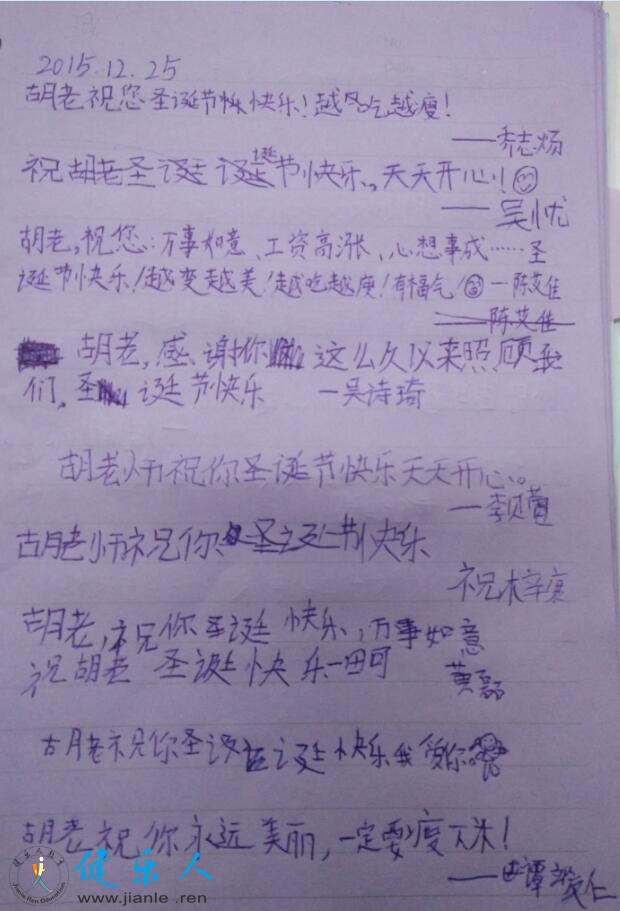 2015.12.25
胡老祝您圣诞节快乐!越吃越瘦!
——乔志炀
祝胡老圣诞 诞节快乐。天天开心!
诞
——吴忧
胡老,祝您:万事如意、工资高涨、心想事成……圣
诞节快乐!越变越美!越吃越瘦!有福气!—陈艾佳
——陈艾佳
胡老,感谢你 这么久以来照顾我
们,圣 诞节快乐 —吴诗琦
胡老师祝你圣诞节快乐天天开心。
—李贝萱
胡老师祝你 圣诞节快乐
祝梓
胡老,祝你圣诞 快乐,万事如意
黄磊
祝胡老 圣诞快乐—田可
胡老祝你圣诞 诞快乐我爱你
胡老祝你永远美丽,一定要瘦下来!
——谭
健乐人教育
Jianle Ren Education
健乐人
www.jianle .ren